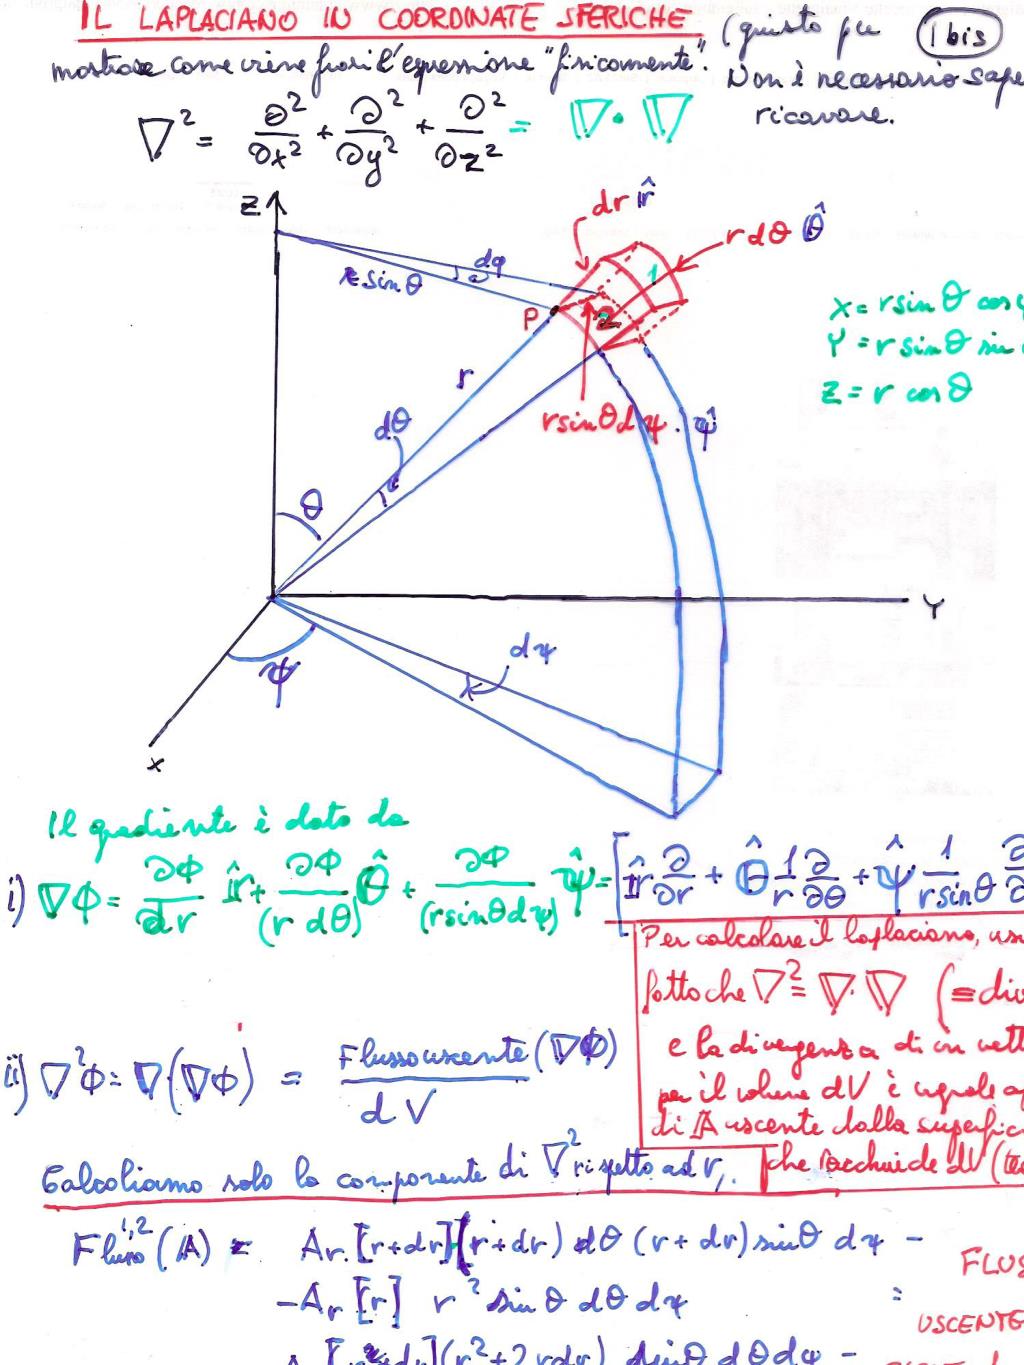 IL LAPLACIANO IN COORDINATE SFERICHE (giusto per 1 bis
mostrare come viene fuori l'espressione "fisicamente". Non è necessario sape
ricavare.
∇² = ∂²/∂x² + ∂²/∂y² + ∂²/∂z² = ∇·∇
Z
dr r̂
r dθ θ̂
dφ
r sin θ
1
P
2
x = r sin θ cos
Y = r sin θ sin
Z = r cos θ
r
r sin θ dψ · ψ̂
dθ
θ
Y
dψ
ψ
x
Il gradiente è dato da
i) ∇Φ = ∂Φ/dr r̂ + ∂Φ/(r dθ) θ̂ + ∂Φ/(r sin θ dψ) ψ̂ = [r̂ ∂/∂r + θ̂ 1/r ∂/∂θ + ψ̂ 1/(r sin θ) ∂
Per calcolare il laplaciano, us
fatto che ∇² = ∇·∇ (≡ div
e la divergenza di un vett
per il volume dV è uguale a
di A uscente dalla superfici
che racchiude dV (te
ii) ∇²Φ = ∇·(∇Φ) = Flusso uscente (∇Φ)/dV
Calcoliamo solo la componente di ∇² rispetto ad r,.
Flusso¹,² (A) = Ar [r+dr](r+dr) dθ (r+dr) sin θ dψ −
−Ar [r] r² sin θ dθ dψ =
FLUS
USCENTE
[r+dr](r²+2rdr) sin θ dθ dψ −